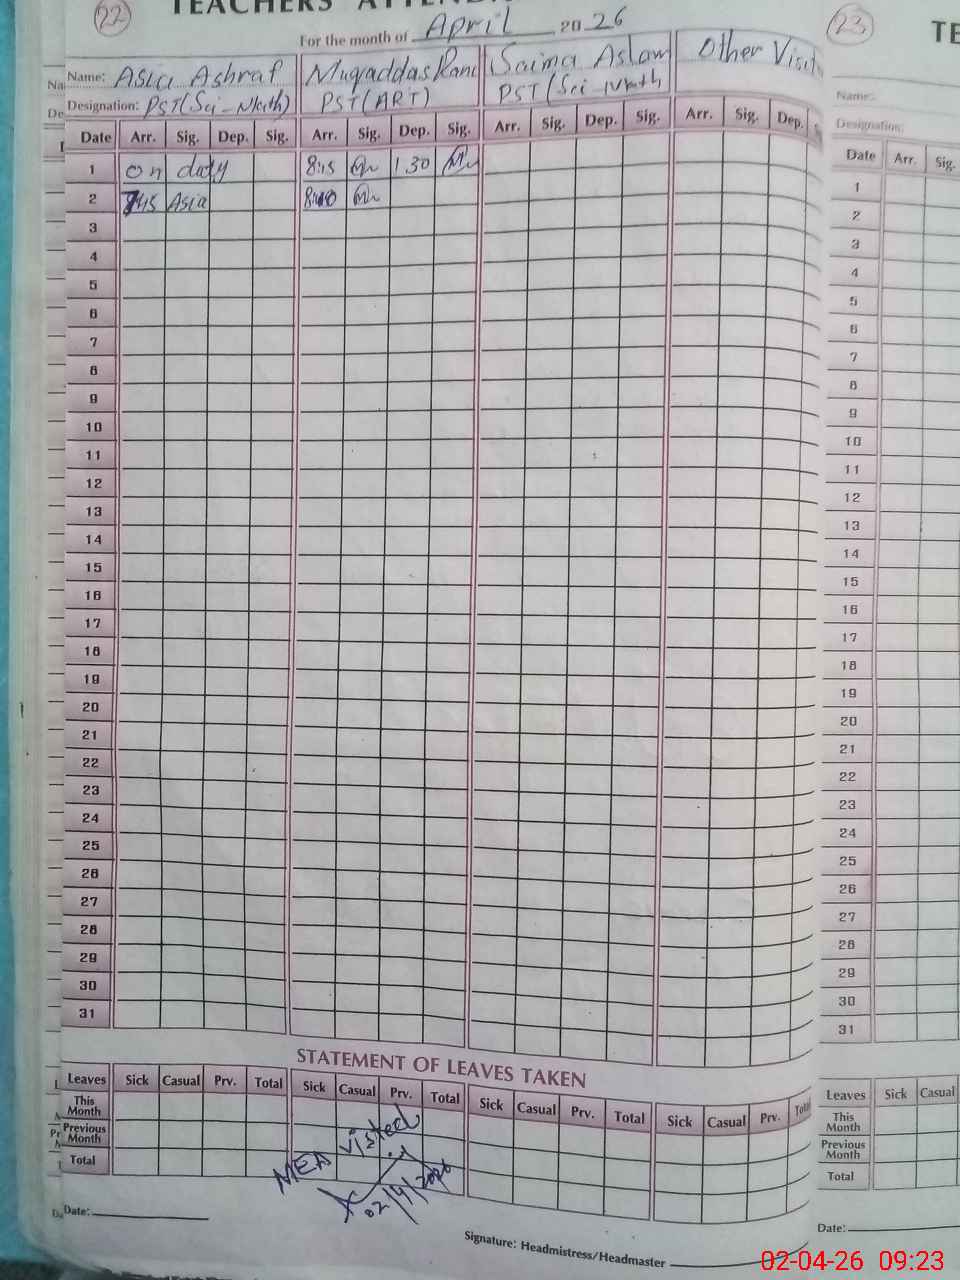 22
TEACHERS'
For the month of April 2026
Name: Asia Ashraf Muqaddas Rani Saima Aslam Other Visit
Designation: PST(Sci-Math) PST(ART) PST(Sci-Math
Date Arr. Sig. Dep. Sig. Arr. Sig. Dep. Sig. Arr. Sig. Dep. Sig. Arr. Sig. Dep.
1 on duty 8:15 1.30
2 7:45 Asia
3
4
5
6
7
8
9
10
11
12
13
14
15
16
17
18
19
20
21
22
23
24
25
26
27
28
29
30
31
STATEMENT OF LEAVES TAKEN
Leaves Sick Casual Prv. Total Sick Casual Prv. Total Sick Casual Prv. Total Sick Casual Prv. Total
This Month
Previous Month
Total
MEA visted
02/4/2026
Date:
Signature: Headmistress/Headmaster
23
TE
Name:
Designation:
Date Arr. Sig.
1
2
3
4
5
6
7
8
9
10
11
12
13
14
15
16
17
18
19
20
21
22
23
24
25
26
27
28
29
30
31
Leaves Sick Casual
This Month
Previous Month
Total
Date:
02-04-26 09:23